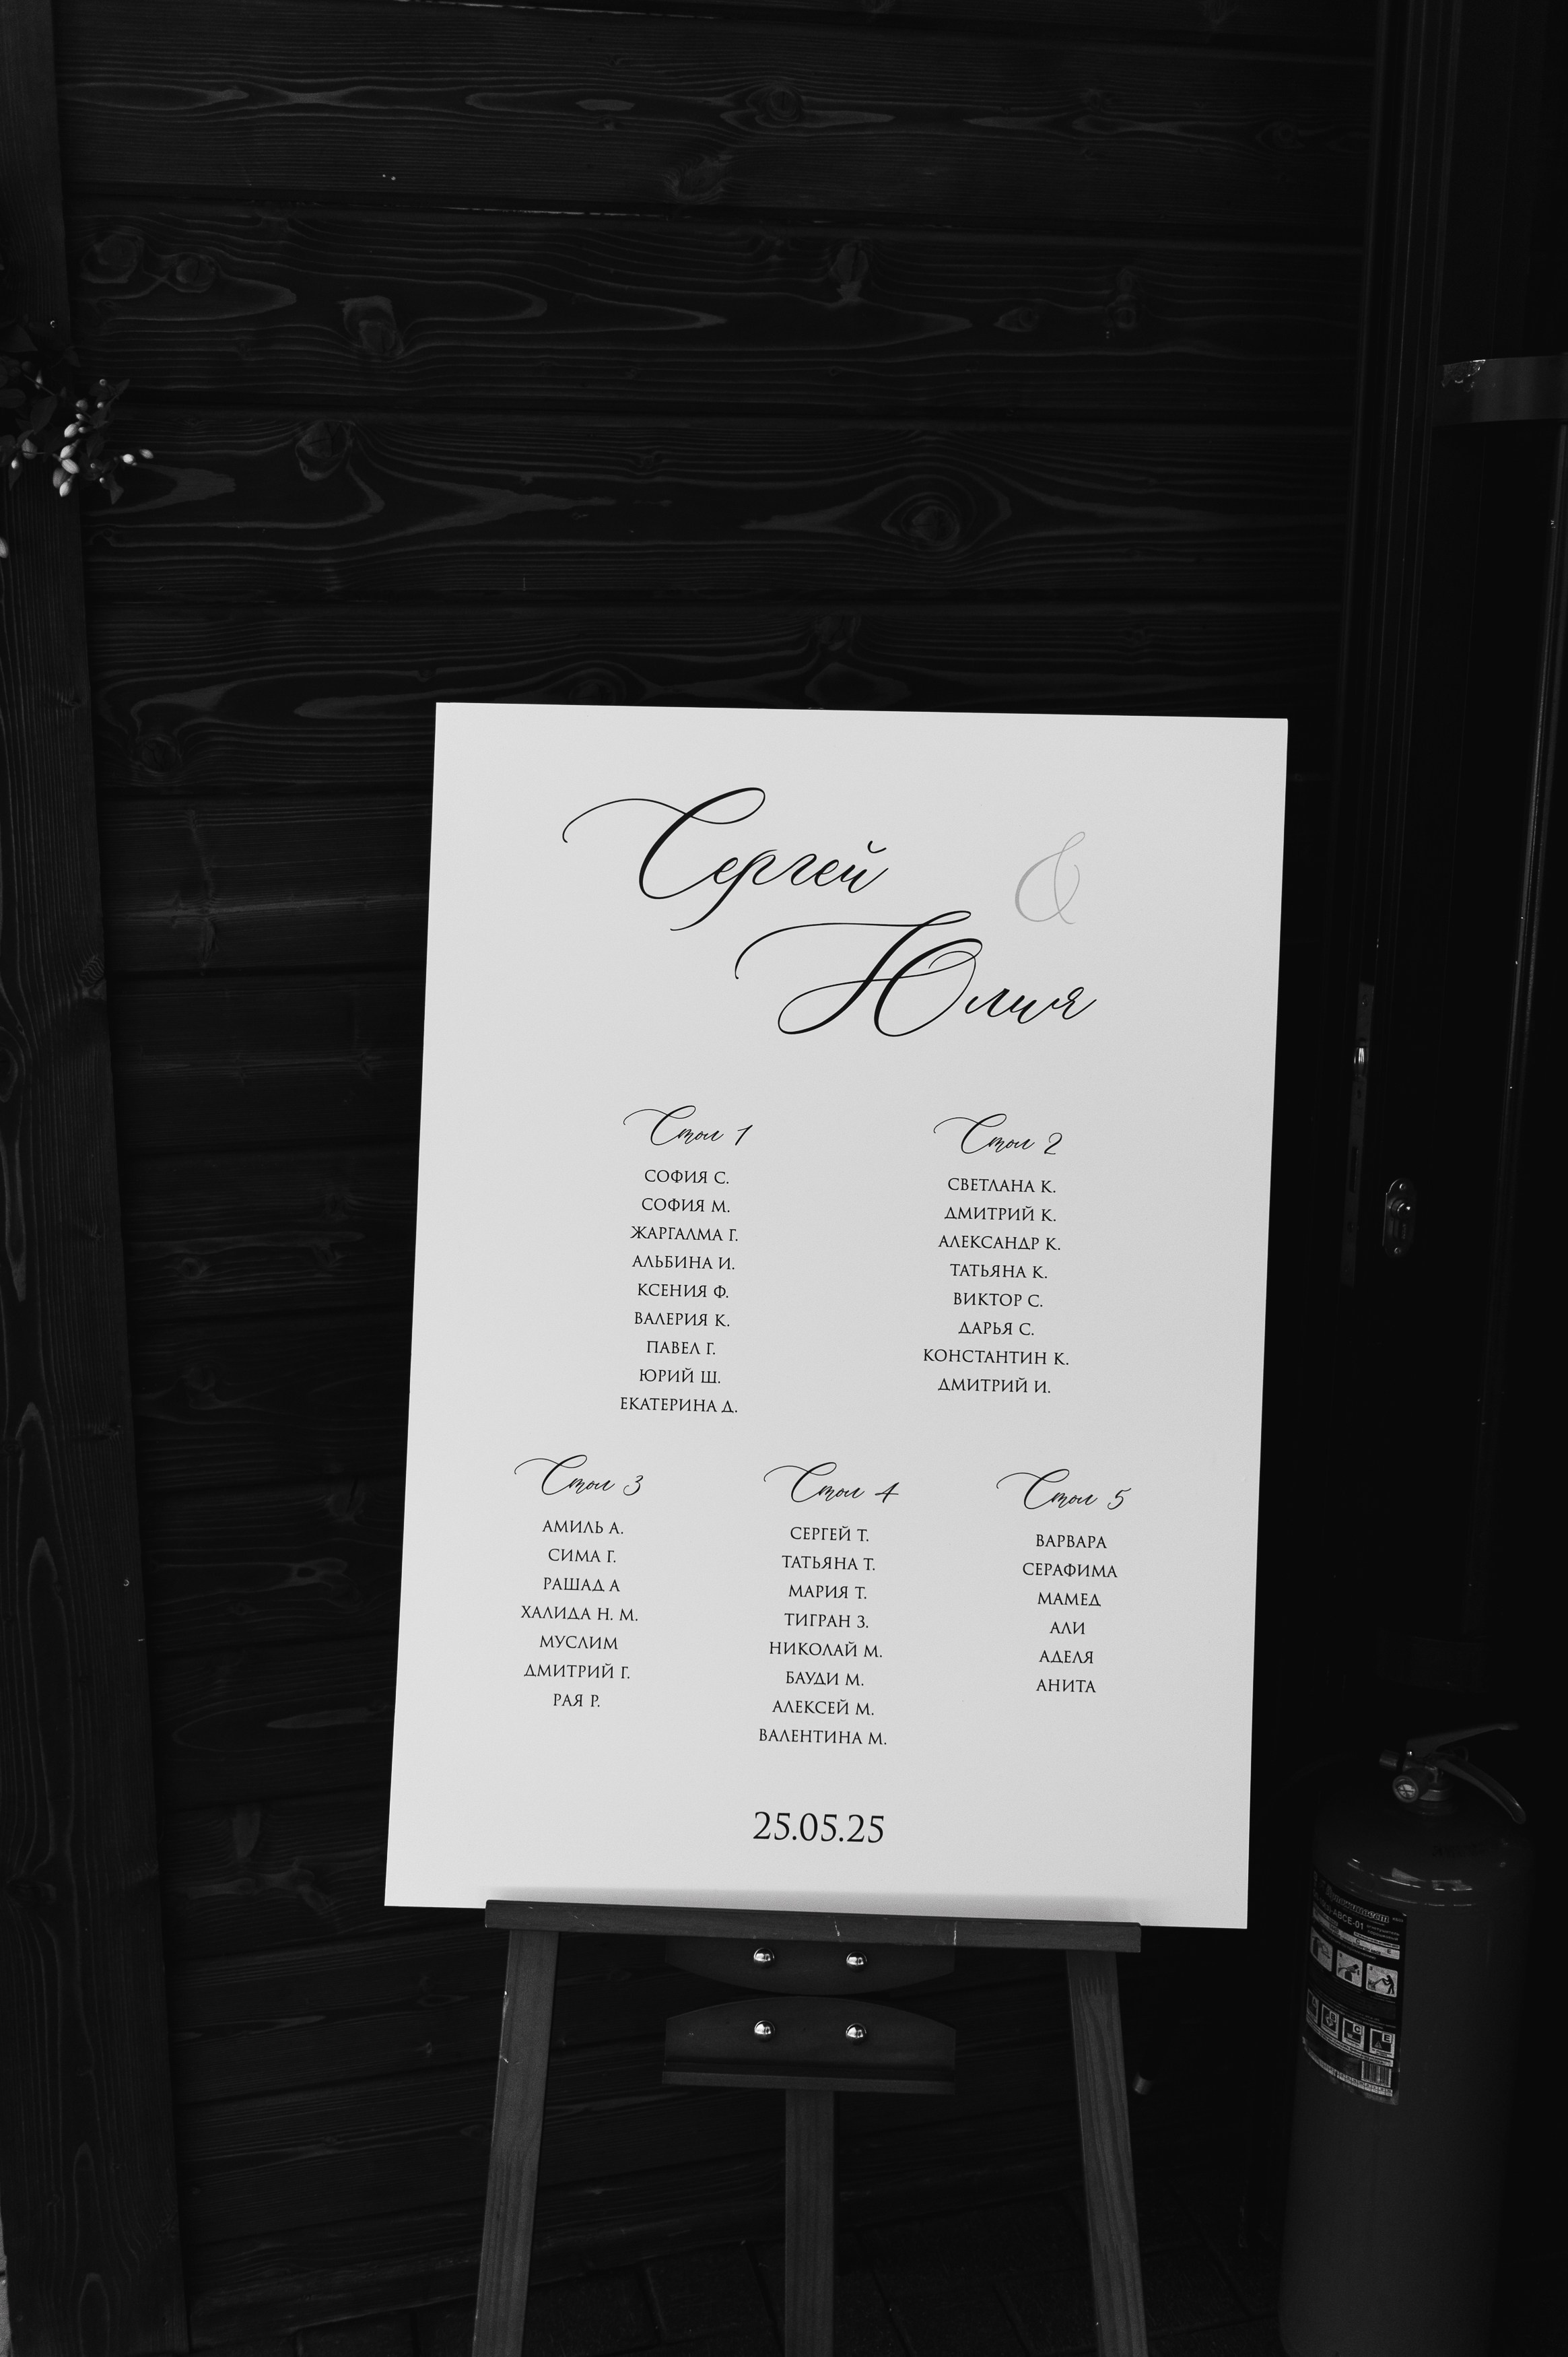 Сергей &
Юлия
Стол 1
СОФИЯ С.
СОФИЯ М.
ЖАРГАЛМА Г.
АЛЬБИНА И.
КСЕНИЯ Ф.
ВАЛЕРИЯ К.
ПАВЕЛ Г.
ЮРИЙ Ш.
ЕКАТЕРИНА Д.
Стол 2
СВЕТЛАНА К.
ДМИТРИЙ К.
АЛЕКСАНДР К.
ТАТЬЯНА К.
ВИКТОР С.
ДАРЬЯ С.
КОНСТАНТИН К.
ДМИТРИЙ И.
Стол 3
АМИЛЬ А.
СИМА Г.
РАШАД А
ХАЛИДА Н. М.
МУСЛИМ
ДМИТРИЙ Г.
РАЯ Р.
Стол 4
СЕРГЕЙ Т.
ТАТЬЯНА Т.
МАРИЯ Т.
ТИГРАН З.
НИКОЛАЙ М.
БАУДИ М.
АЛЕКСЕЙ М.
ВАЛЕНТИНА М.
Стол 5
ВАРВАРА
СЕРАФИМА
МАМЕД
АЛИ
АДЕЛЯ
АНИТА
25.05.25